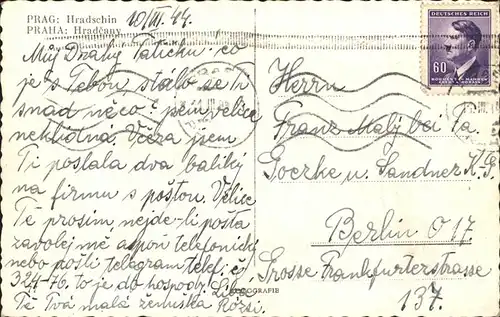 PRAG: Hradschin
PRAHA: Hradčany
10/III. 44.
Můj Drahý Tatíčku! co
je s Tebou, stalo se ti
snad něco? jsem velice
neklidná. Včera jsem
Ti poslala dva balíky
na firmu s poštou. Velice
Tě prosím nejde-li pošta
zavolej mě aspoň telefonicky
nebo pošli telegram telef. č.
324-76. to je do hospody.
Tě Tvá malá ženuška
Herrn
Franz Malý bei Fa.
Goezke u. Sandner K.G.
Berlin O 17
Grosse Frankfurterstrasse
137.
DEUTSCHES REICH
60
BÖHMEN U. MÄHREN